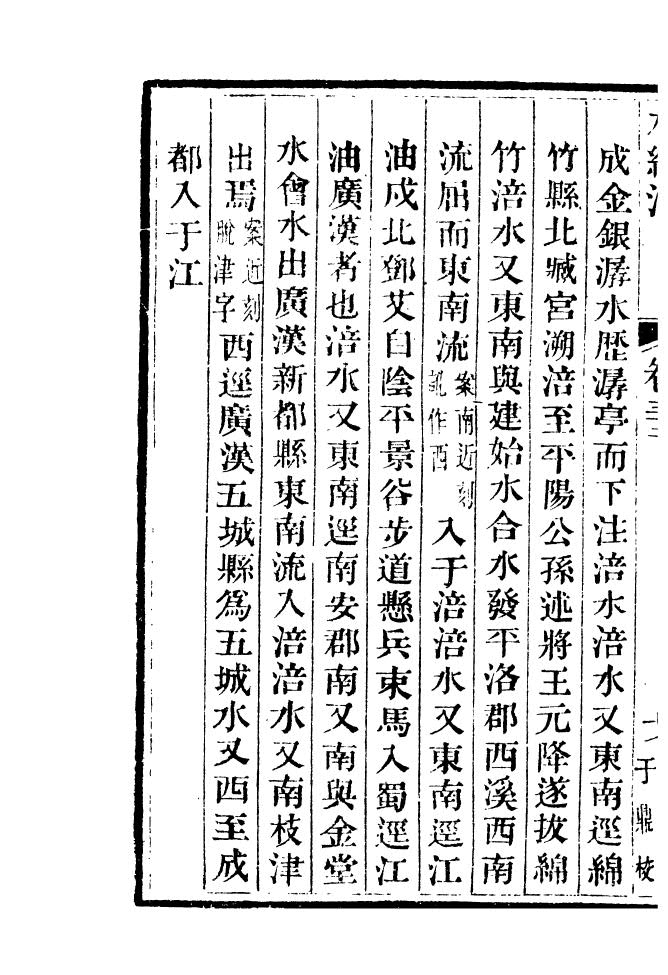 水經注 卷三 于鼎校
成金銀潺水歷潺亭而下注涪水涪水又東南逕綿
竹縣北臧宮溯涪至平陽公孫述將王元降遂拔綿
竹涪水又東南與建始水合水發平洛郡西溪西南
流屈而東南流案南近刻訛作西入于涪涪水又東南逕江
油戍北鄧艾自陰平景谷步道懸兵束馬入蜀逕江
油廣漢者也涪水又東南逕南安郡南又南與金堂
水會水出廣漢新都縣東南流入涪涪水又南枝津
出焉案近刻脫津字西逕廣漢五城縣爲五城水又西至成
都入于江